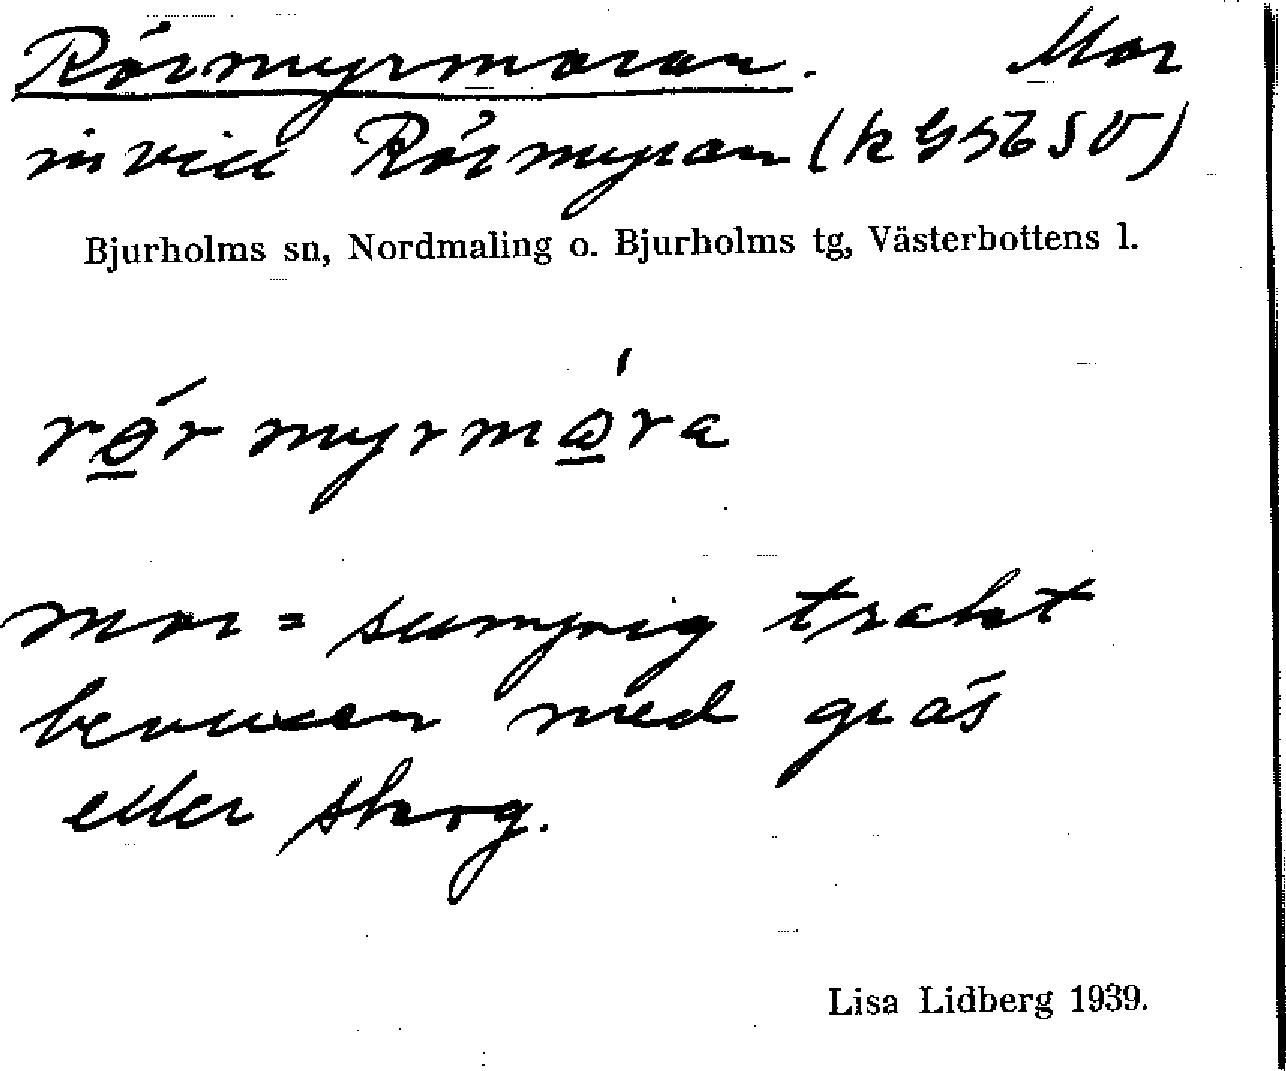 Rörmyrmoran. Mor
invid Rörmyran (k G 456 SV)
Bjurholms sn, Nordmaling o. Bjurholms tg, Västerbottens l.
mor = sumprig trakt
bevuxen med gräs
eller skog.
Lisa Lidberg 1939.